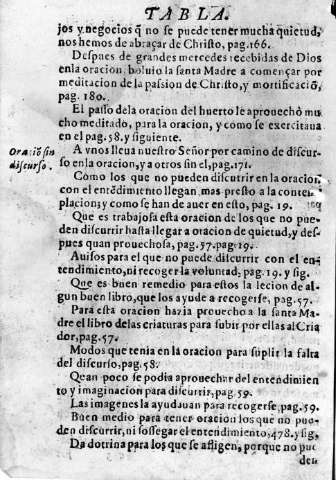 TABLA.
jos y negocios q̃ no se puede tener mucha quietud,
nos hemos de abraçar de Christo, pag. 166.
Despues de grandes mercedes recebidas de Dios
en la oracion, boluio la santa Madre a començar por
meditacion de la passion de Christo, y mortificaciõ,
pag. 180.
El passo de la oracion del huerto le aprouechò mu
cho meditado, para la oracion, y como se exercitaua
en el pag. 58. y siguiente.
Oraciõ sin
discurso.
A vnos lleua nuestro Señor por camino de discur-
so en la oracion, y a otros sin el, pag. 171.
Como los que no pueden discutrir en la oracion
con el entẽdimiento llegan mas presto a la contem
placion; y como se han de auer en esto, pag. 19.
Que es trabajosa esta oracion de los que no pue-
den discurrir hasta llegar a oracion de quietud, y des-
pues quan prouechosa, pag. 57. pag. 19.
Auisos para el que no puede discurrir con el en-
tendimiento, ni recoger la voluntad, pag. 19. y sig.
Que es buen remedio para estos la lecion de al-
gun buen libro, que los ayude a recogerse, pag. 57.
Para esta oracion hazia prouecho a la santa Ma-
dre el libro de las criaturas para subir por ellas al Cria
dor, pag. 57.
Modos que tenia en la oracion para suplir la falta
del discurso, pag. 58.
Quan poco se podia aprouechar del entendimien
to y imaginacion para discurrir, pag. 59.
Las imagenes la ayudauan para recogerse, pag. 59.
Buen medio para tener oracion los que no pue-
den discurrir, ni sossegar el entendimiento, 478. y sig.
Da dotrina para los que se afligen, porque no pue
den